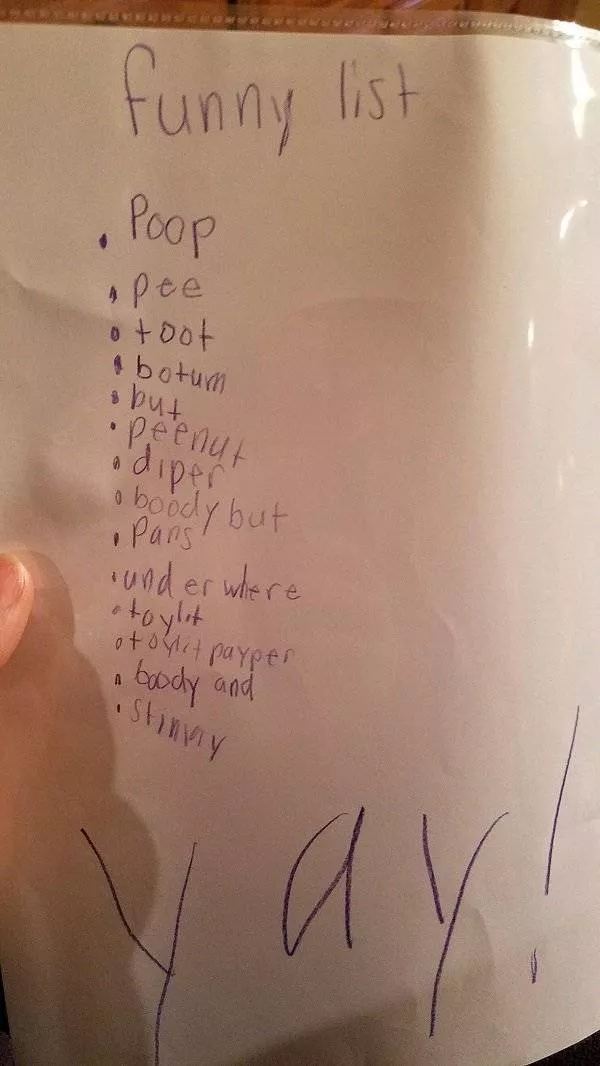 funny list
• Poop
• pee
• toot
• botum
• but
• peenut
• diper
• boody but
• Pans
• under where
• toylit
• toylit payper
• boody and
•
yay!